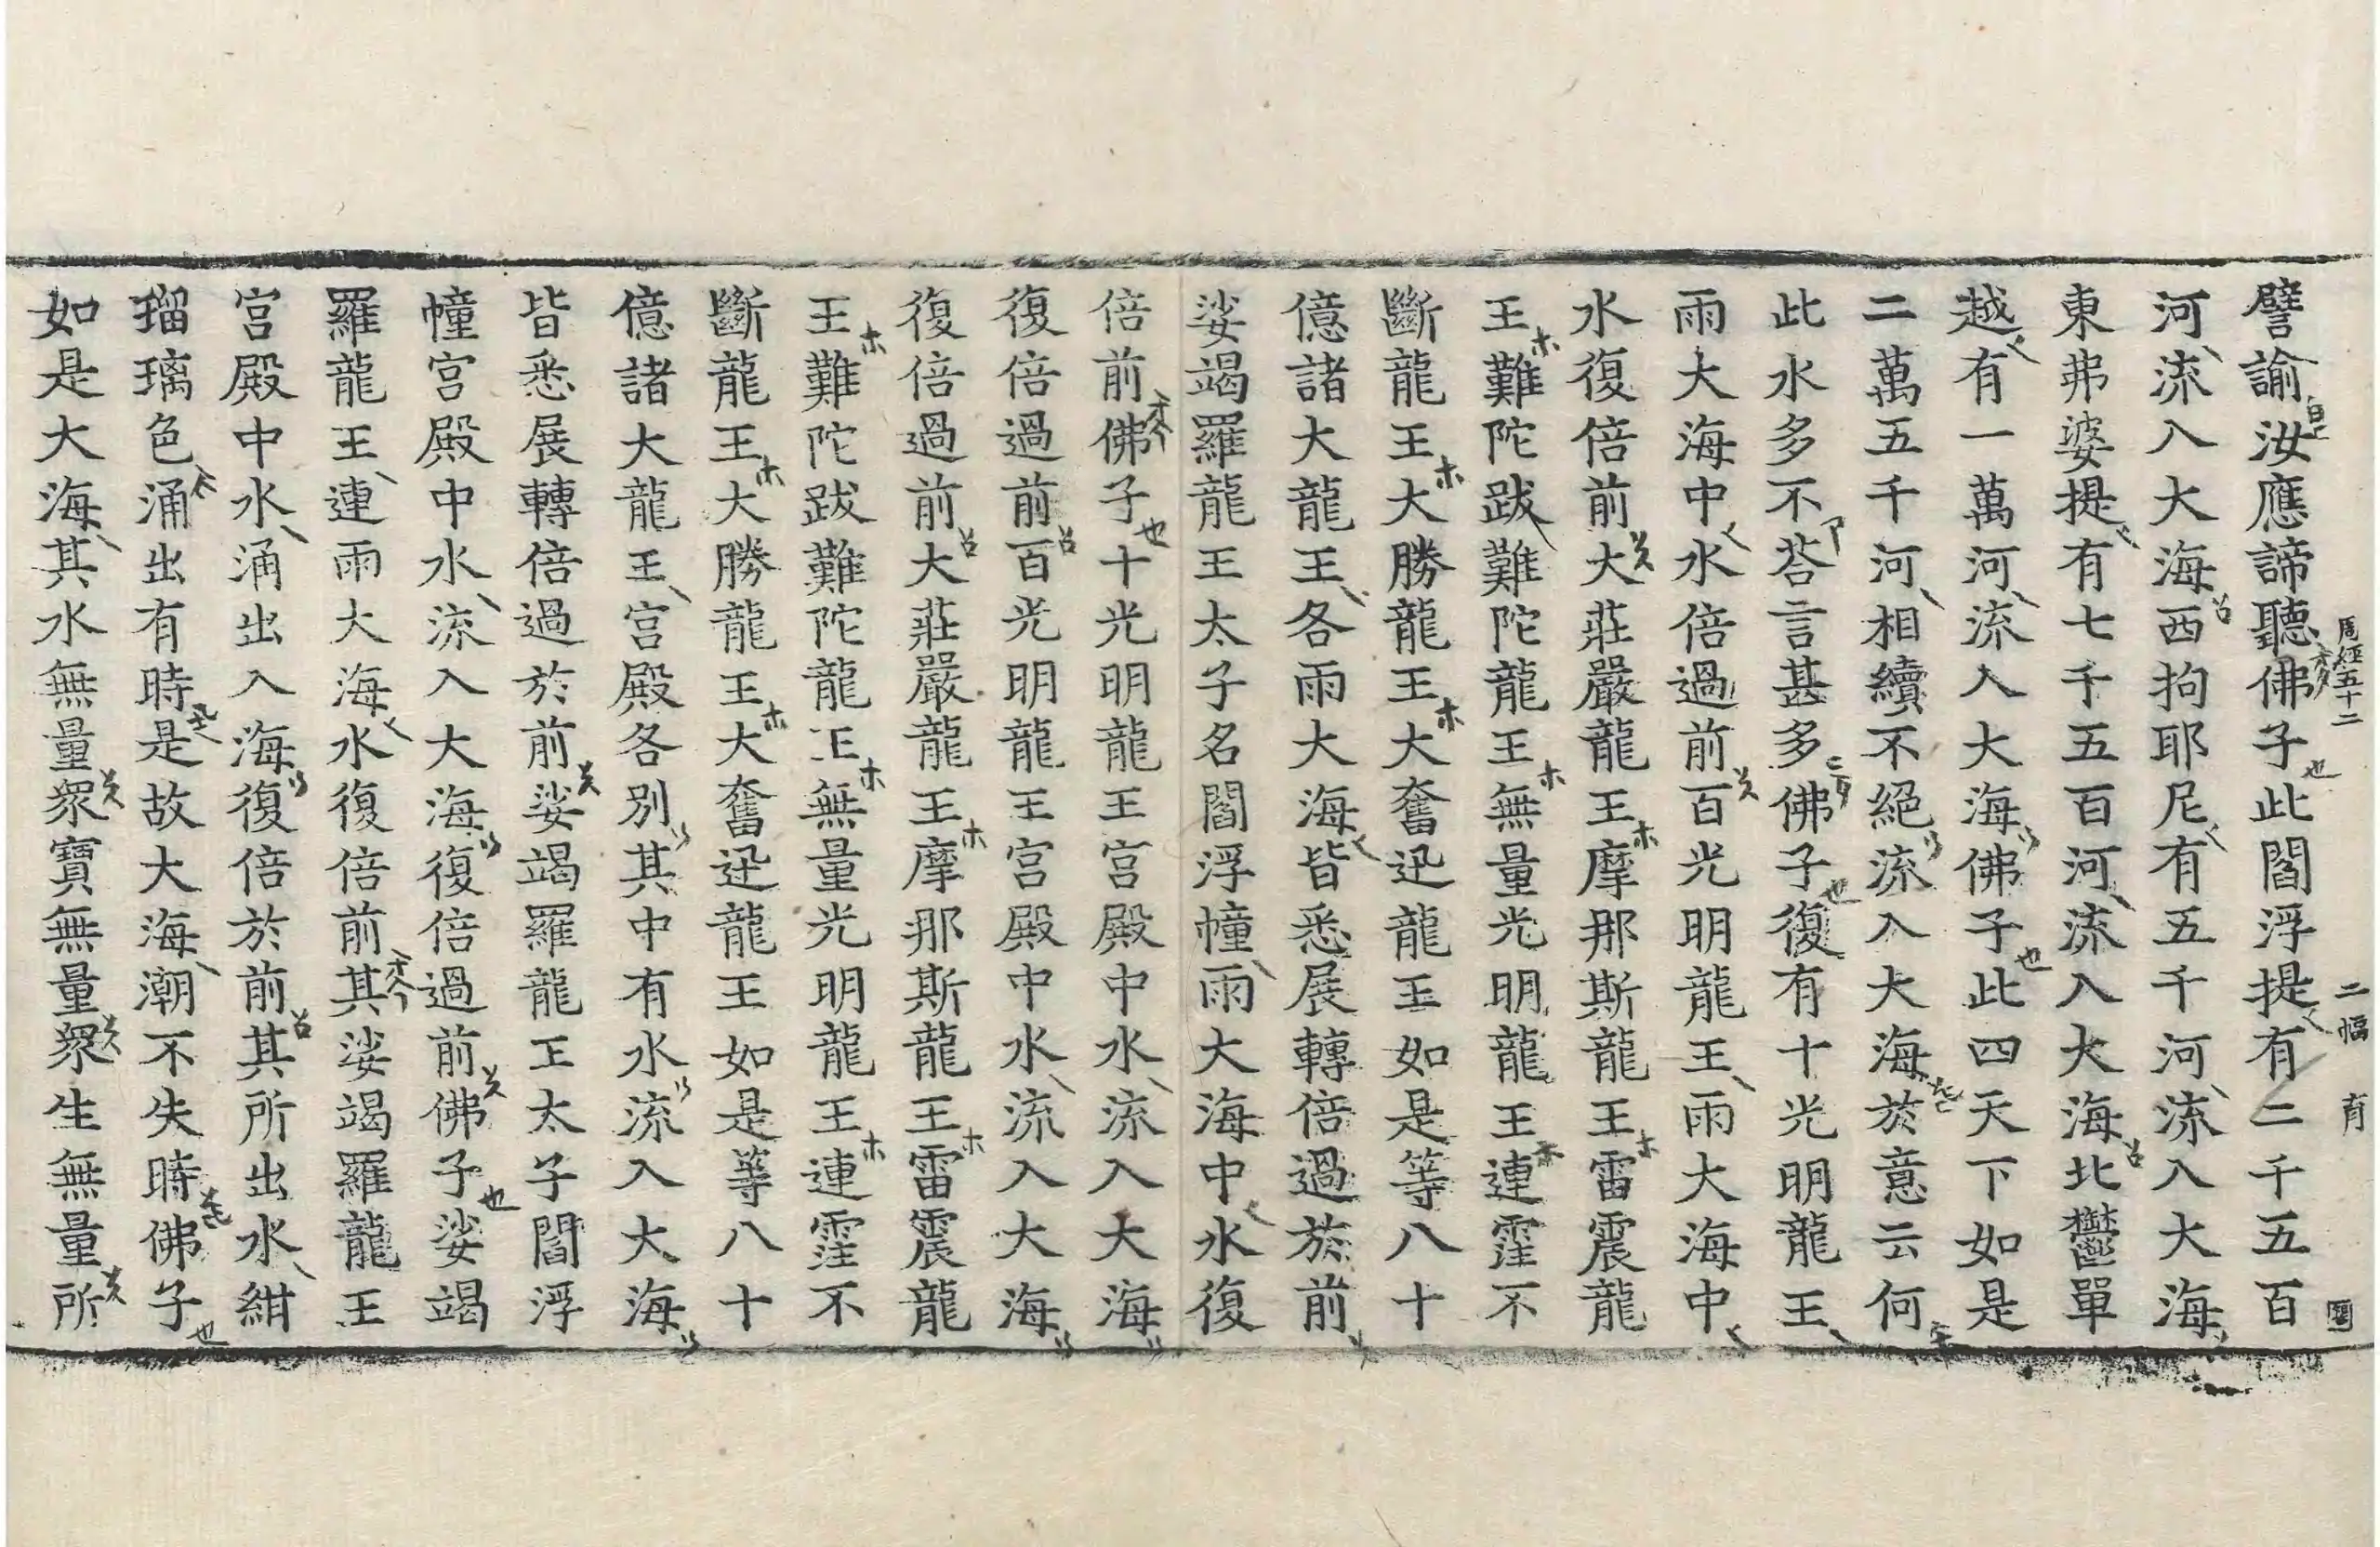 周經五十二 二幅 育
譬諭汝應諦聽佛子此閻浮提有二千五百
河流入大海西拘耶尼有五千河流入大海
東弗婆提有七千五百河流入大海北鬱單
越有一萬河流入大海佛子此四天下如是
二萬五千河相續不絕流入大海於意云何
此水多不荅言甚多佛子復有十光明龍王
雨大海中水倍過前百光明龍王雨大海中
水復倍前大莊嚴龍王摩那斯龍王雷震龍
王難陀跋難陀龍王無量光明龍王連霔不
斷龍王大勝龍王大奮迅龍王如是等八十
億諸大龍王各雨大海皆悉展轉倍過於前
娑竭羅龍王太子名閻浮幢雨大海中水復
倍前佛子十光明龍王宮殿中水流入大海
復倍過前百光明龍王宮殿中水流入大海
復倍過前大莊嚴龍王摩那斯龍王雷震龍
王難陀跋難陀龍王無量光明龍王連霔不
斷龍王大勝龍王大奮迅龍王如是等八十
億諸大龍王宮殿各別其中有水流入大海
皆悉展轉倍過於前娑竭羅龍王太子閻浮
幢宮殿中水流入大海復倍過前佛子娑竭
羅龍王連雨大海水復倍前其娑竭羅龍王
宮殿中水涌出入海復倍於前其所出水紺
瑠璃色涌出有時是故大海潮不失時佛子
如是大海其水無量衆寶無量衆生無量所